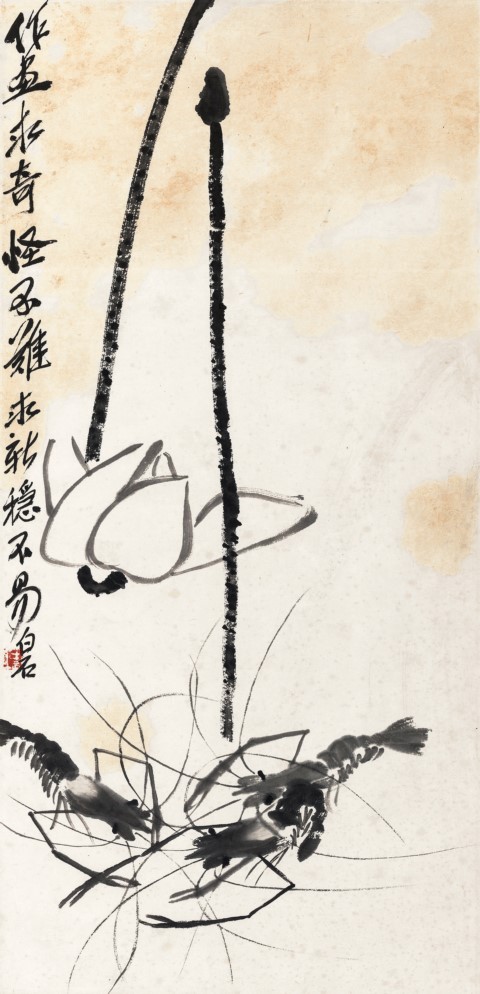 作畫求奇怪不難求新穩不易白石